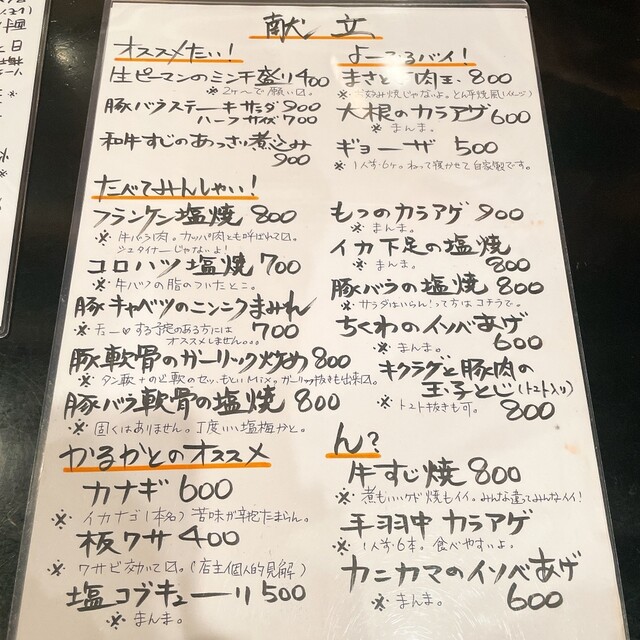 献立
オススメたい！
生ピーマンのミンチ盛り 400
※2ヶ〜で願い〼。
豚バラステーキサラダ 900
ハーフサイズ 700
和牛すじのあっさり煮込み
900
よーでるバイ！
800
※お好み焼じゃないよ。とん平焼風！
大根のカラアゲ 600
※まんま。
ギョーザ 500
※1人前6ヶ。ねって寝かせて自家製です。
たべてみんしゃい！
フランケン塩焼 800
※牛バラ肉。カッパ肉とも呼ばれて〼。
シュタイナーじゃないよ！
コロハツ塩焼 700
※牛ハツの脂のついたとこ。
豚キャベツのニンニクまみれ
700
※する予定のある方には
オススメしません。。。
豚軟骨のガーリック炒め 800
※タン軟＋のど軟のセッ、もといMix。ガーリック抜きも出来〼。
豚バラ軟骨の塩焼 800
※固くはありません。丁度いい塩梅かと。
もつのカラアゲ 900
※まんま。
イカ下足の塩焼
※まんま。 800
豚バラの塩焼 800
※サラダはいらん！って方はコチラで。
ちくわのイソベあげ
※まんま。 600
キクラゲと豚肉の
玉子とじ(トマト入り)
※トマト抜きも可。 800
かるかとのオススメ
カナギ 600
※イカナゴ(本名) 苦味が辛抱たまらん。
板ワサ 400
※ワサビ効いて〼。(店主個人的見解)
塩コブキューリ 500
※まんま。
ん？
牛すじ焼 800
※煮もいいケド焼もイイ。みんな違ってみんなイイ！
手羽中カラアゲ
※1人前6本。食べやすいよ。
カニカマのイソベあげ
※まんま。 600